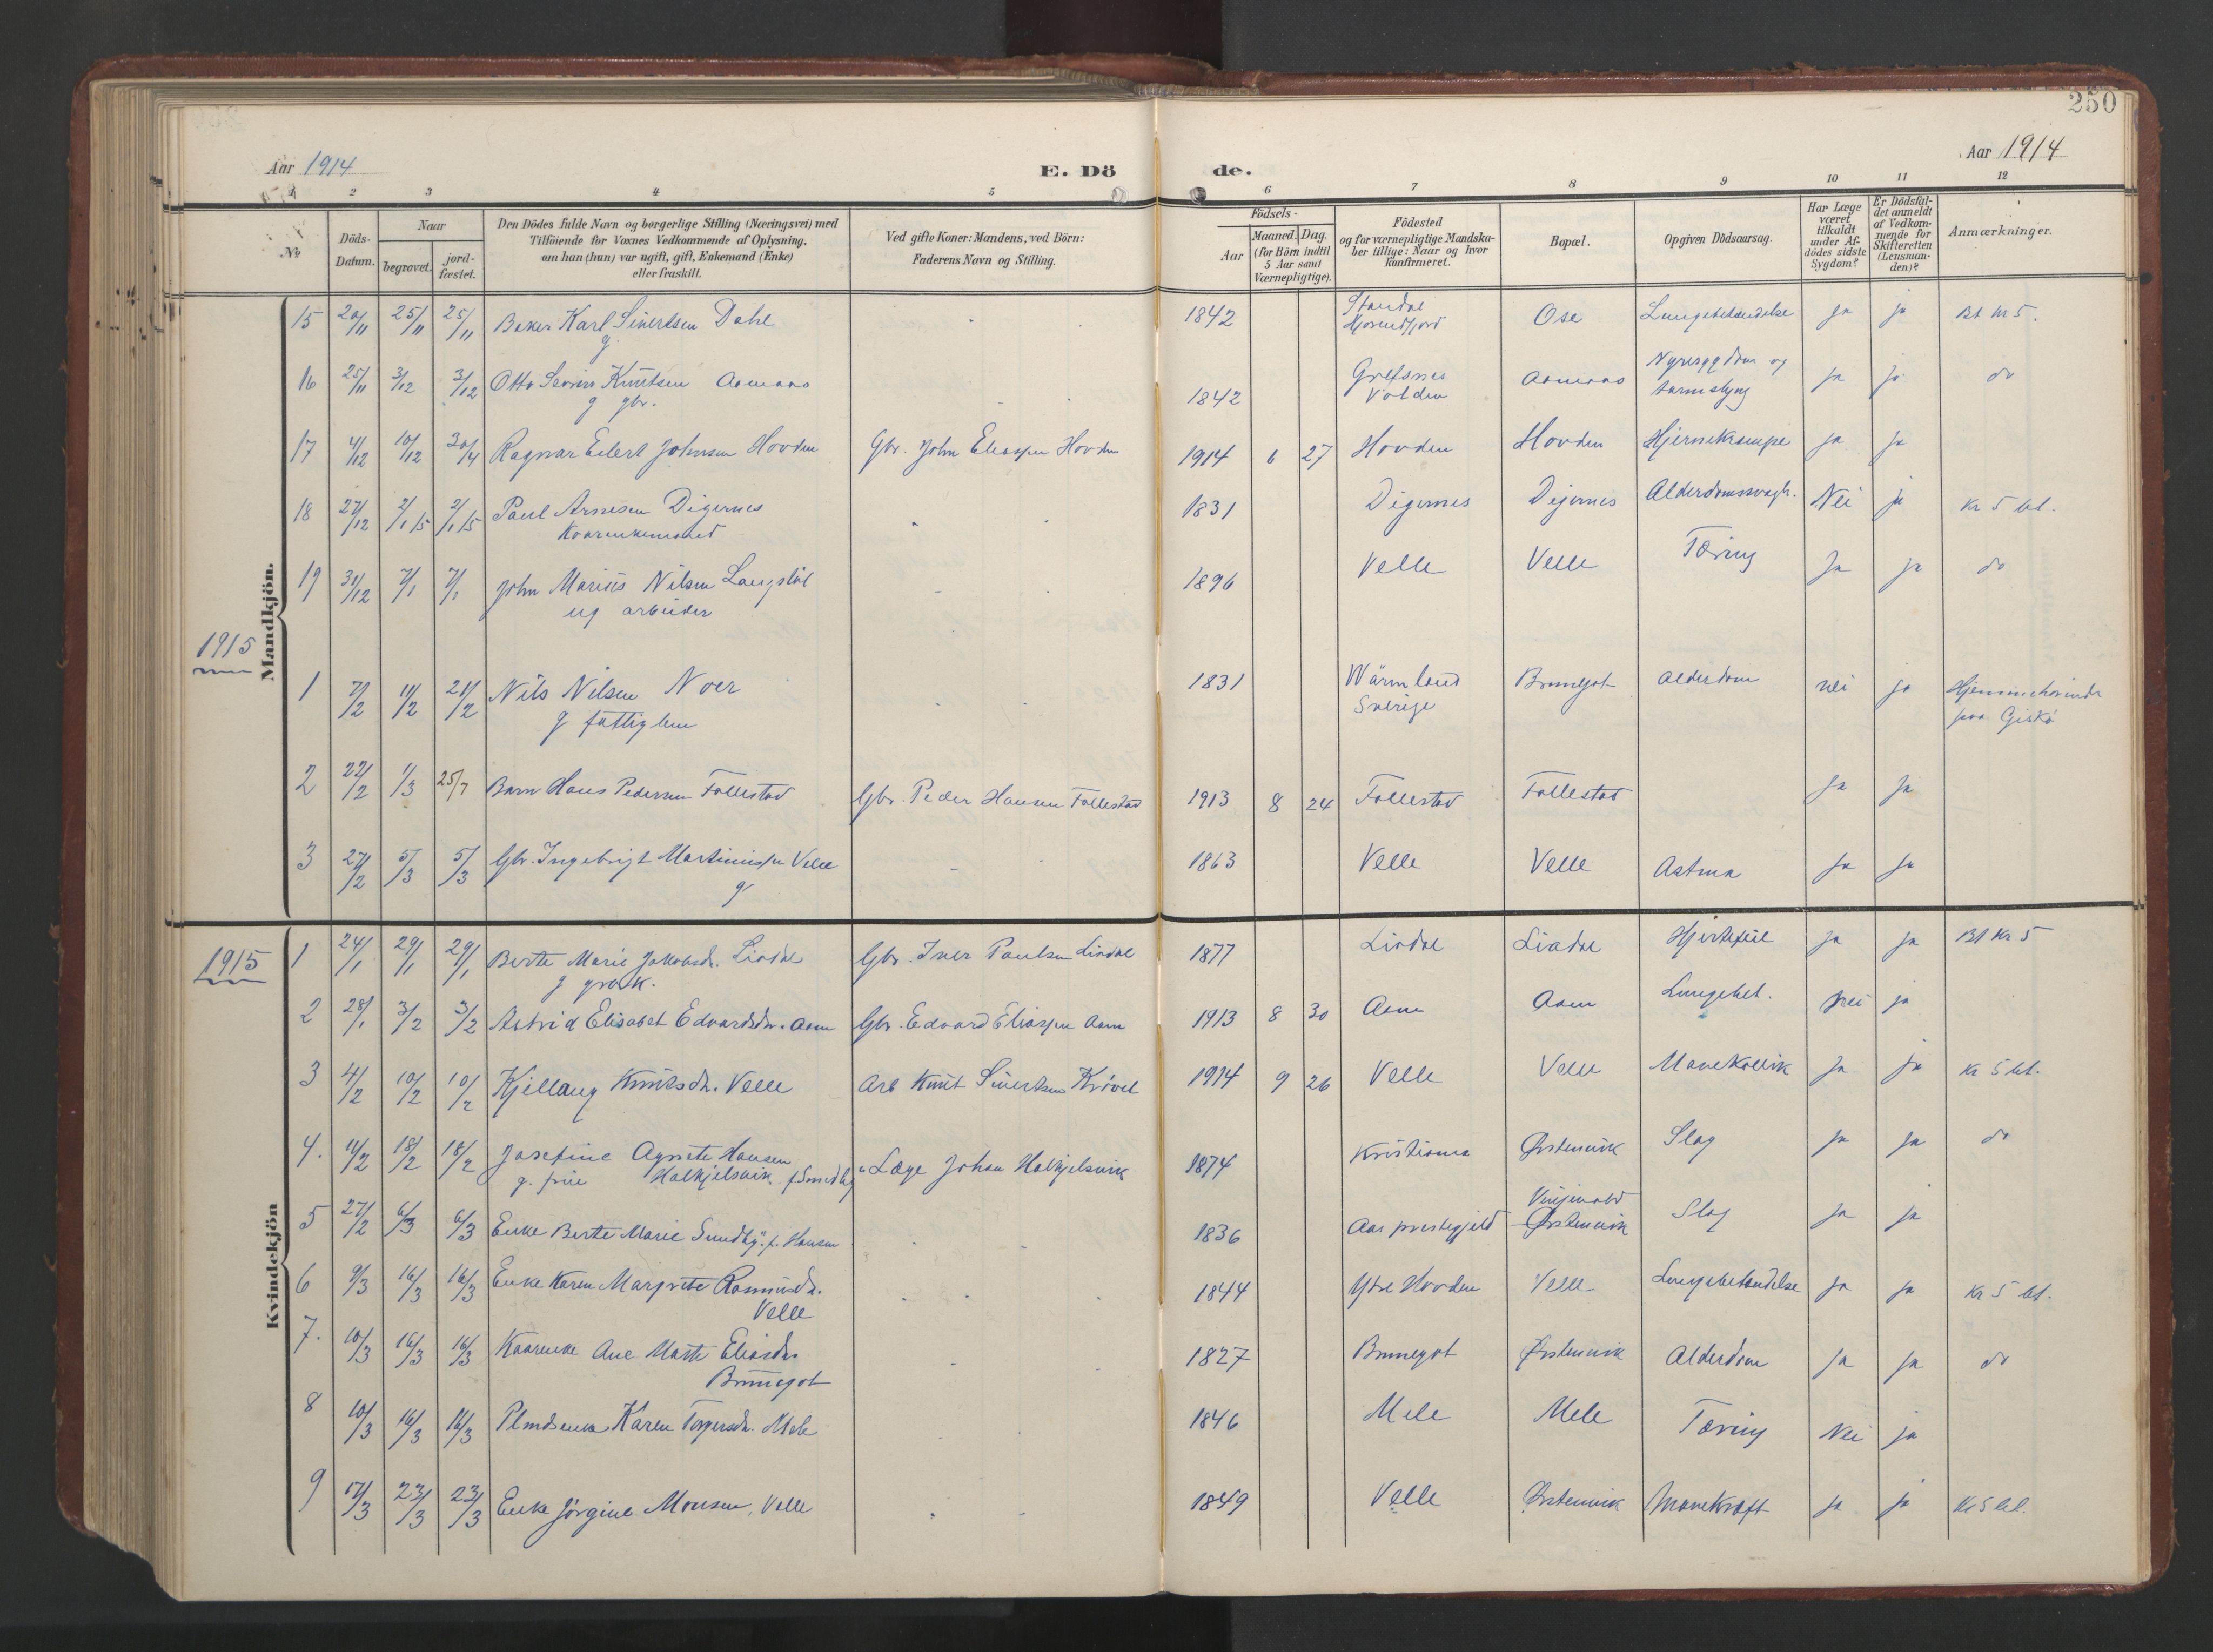 250
Aar 1914
E. Dö
de.
Aar 1914
1 2 3 4 5 6 7 8 9 10 11 12
No
Döds-
Datum.
Naar
begravet.
jord-
fæstet.
Den Dödes fulde Navn og borgerlige Stilling (Næringsvei) med
Tilföiende for Voxnes Vedkommende af Oplysning,
om han (hun) var ugift, gift, Enkemand (Enke)
eller fraskilt.
Ved gifte Koner: Mandens, ved Börn:
Faderens Navn og Stilling.
Födsels-
Aar
Maaned. Dag.
(for Börn indtil
5 Aar samt
Værnepligtige).
Födested
og for værnepligtige Mandska-
ber tillige: Naar og hvor
konfirmeret.
Bopæl.
Opgiven Dödsaarsag.
Har Læge
været
tilkaldt
under Af-
dödes sidste
Sygdom?
Er Dödsfal-
det anmeldt
af Vedkom-
mende for
Skifteretten
(Lensman-
den)?
Anmærkninger.
Mandkjön.
15 20/11 25/11 25/11 Karl Sivertsen Dahl 1842 Standal Ose Lungebetændelse ja ja Bt kr 5.
g Hjorundfjord
16 25/11 3/12 3/12 Otto Severin Knutsen Aamaas 1842 Grefsnes Aamaas Nyresygdom og ja ja do
g gbr. Volden tarmslyng
17 4/12 10/12 30/4 Ragnar Eilert Johnsen Hovden Gbr. John Eliassen Hovden 1914 6 27 Hovden Hovden Hjernekrampe ja ja
18 27/12 2/1 15 2/1 15 Paul Arnesen Digernes 1831 Digernes Digernes Alderdomssvagh. Nei ja kr 5 bet.
Kaarenkemand
19 31/12 7/1 7/1 John Marius Nilsen Langstöl 1896 Velle Velle Tæring Ja ja do
ug arbeider
1915
1 7/2 11/2 21/2 Nils Nilsen Noer 1831 Wärmland Brunegot Alderdom nei ja
g fattiglem Sverige paa Giskø
2 22/2 1/3 25/7 Barn Hans Pedersen Follestad Gbr. Peder Hansen Follestad 1913 8 24 Follestad Follestad Ja Ja
3 27/2 5/3 5/3 Gbr. Ingebrigt Martinussen Velle 1863 Velle Velle Astma Ja Ja
g
1915
Kvindekjön
1 24/1 29/1 29/1 Berte Marie Jakobsdr. Liadal Gbr. Iver Paulsen Liadal 1877 Liadal Liadal Hjertefeil ja ja Bt Kr 5
g grdk.
2 28/1 3/2 3/2 Astrid Elisabet Edvardsdr. Aam Gbr. Edvard Eliassen Aam 1913 8 30 Aam Aam Lungebet. nei ja
3 4/2 10/2 10/2 Kjellaug Knutsdr. Velle Arb Knut Sivertsen Krövel 1914 9 26 Velle Velle Mavekollik Ja ja kr 5 bet.
4. 11/2 18/2 18/2 Josefine Agnete Hansen Læge Johan Halkjelsvik 1874 Kristiania Ørstenvik Slag ja ja do
g. frue Halkjelsvik f Smedby
5 27/2 6/3 6/3 Enke Berte Marie Sundby f. Hansen 1836 Aas prestegjeld Ørstenvik Slag ja ja
6 9/3 16/3 16/3 Enke Karen Margrete Rasmusdr. 1844 Ytre Hovden Velle Lungebetændelse ja ja Kr 5 bet.
Velle
7. 10/3 16/3 16/3 Kaarenke Ane Marte Eliasdr 1827 Brunegot Ørstenvik Alderdom ja ja do
Brunegot
8 10/3 16/3 16/3 Plmdsenke Karen Torgersdr. Mele 1846 Mele Mele Tæring Nei ja
9 17/3 23/3 23/3 Enke Jörgine Monsen, Velle 1849 Velle Ørstenvik Mavekræft ja ja kr 5 bet.